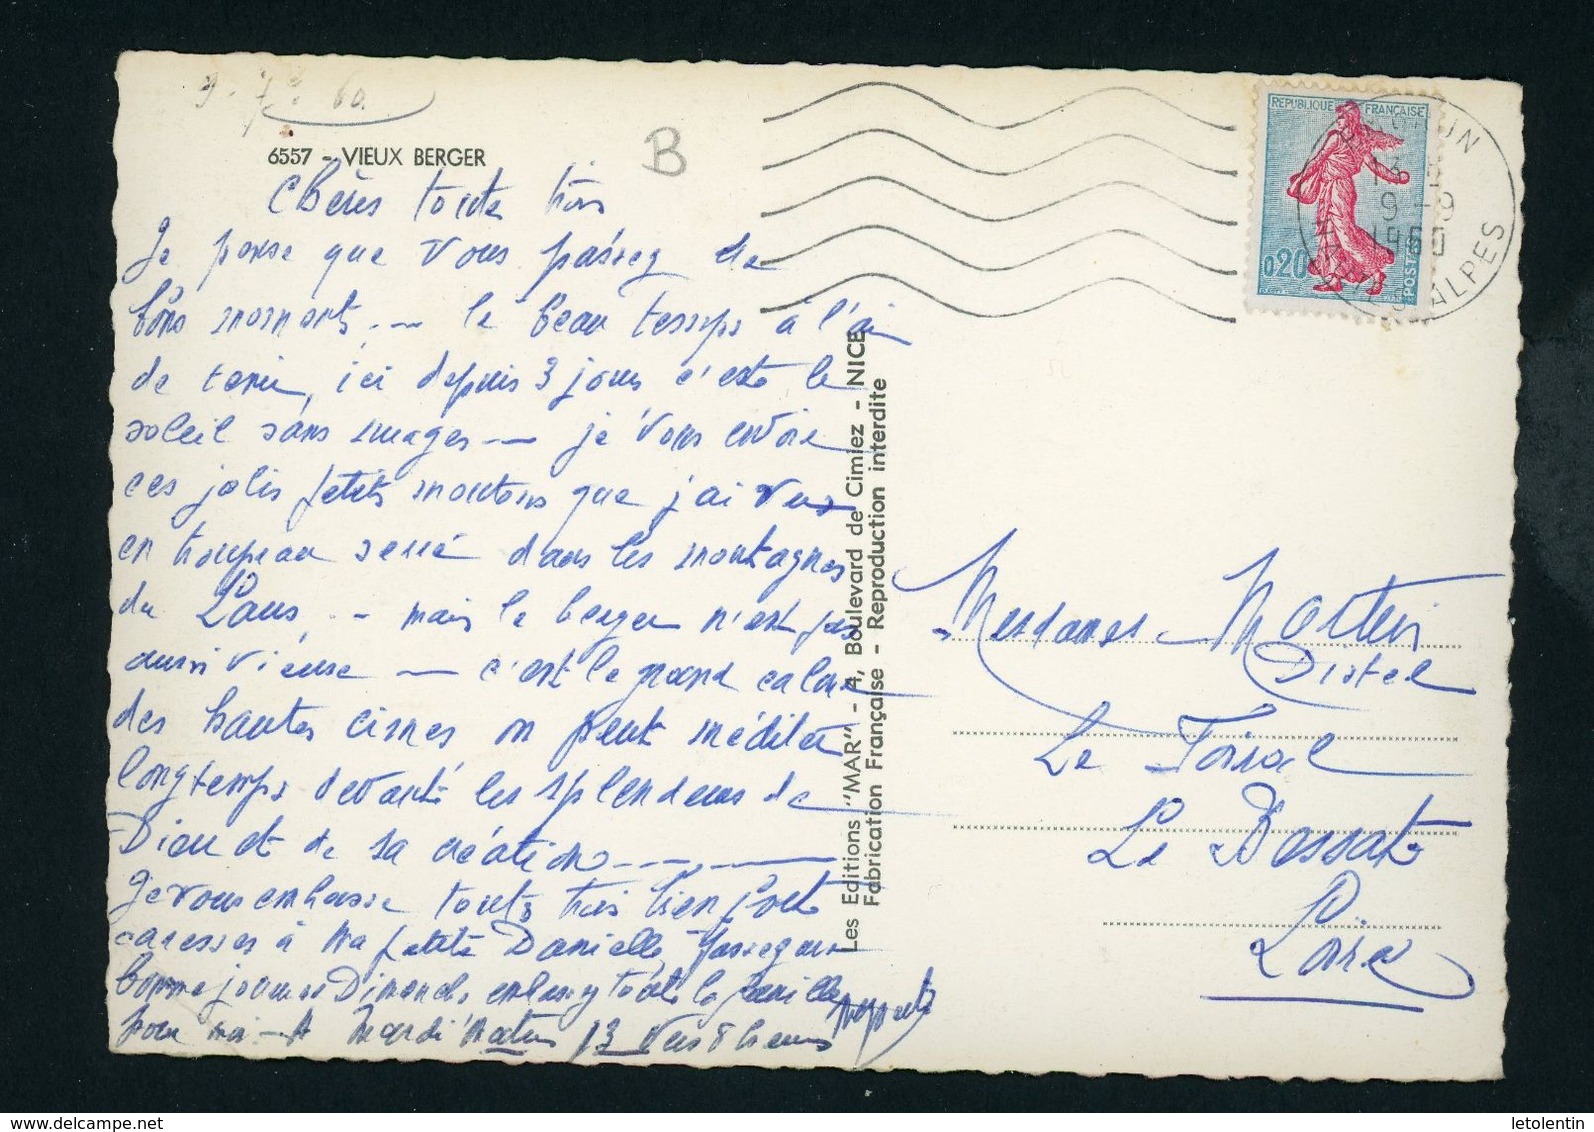 9. 7e 60
6557 - VIEUX BERGER
B
Chères toute trois
Je pense que vous passez de
bons moments. — le beau temps à l'air
de tenir, ici depuis 3 jours c'est le
soleil sans nuages — je vous envoie
ces jolis petits moutons que j'ai vus
en troupeau serré dans les montagnes
du Laus. — mais le berger n'est pas
aussi vieux — c'est le grand calme
des hautes cimes on peut méditer
longtemps devant les splendeurs de
Dieu et de sa création
Je vous embrasse toutes trois bien fort
caresses à ma petite Danielle, passez une
bonne journée Dimanche, embrassez toute la famille
pour moi. — A Mardi matin 13 vers 8 heures
Les Editions "MAR" - 4, Boulevard de Cimiez - NICE
Fabrication Française - Reproduction interdite
REPUBLIQUE FRANÇAISE
0,20
POSTES
13 H
9 - 9
1960
ALPES
Mesdames
Distel
Le
Le Bessat
Loire
letolentin